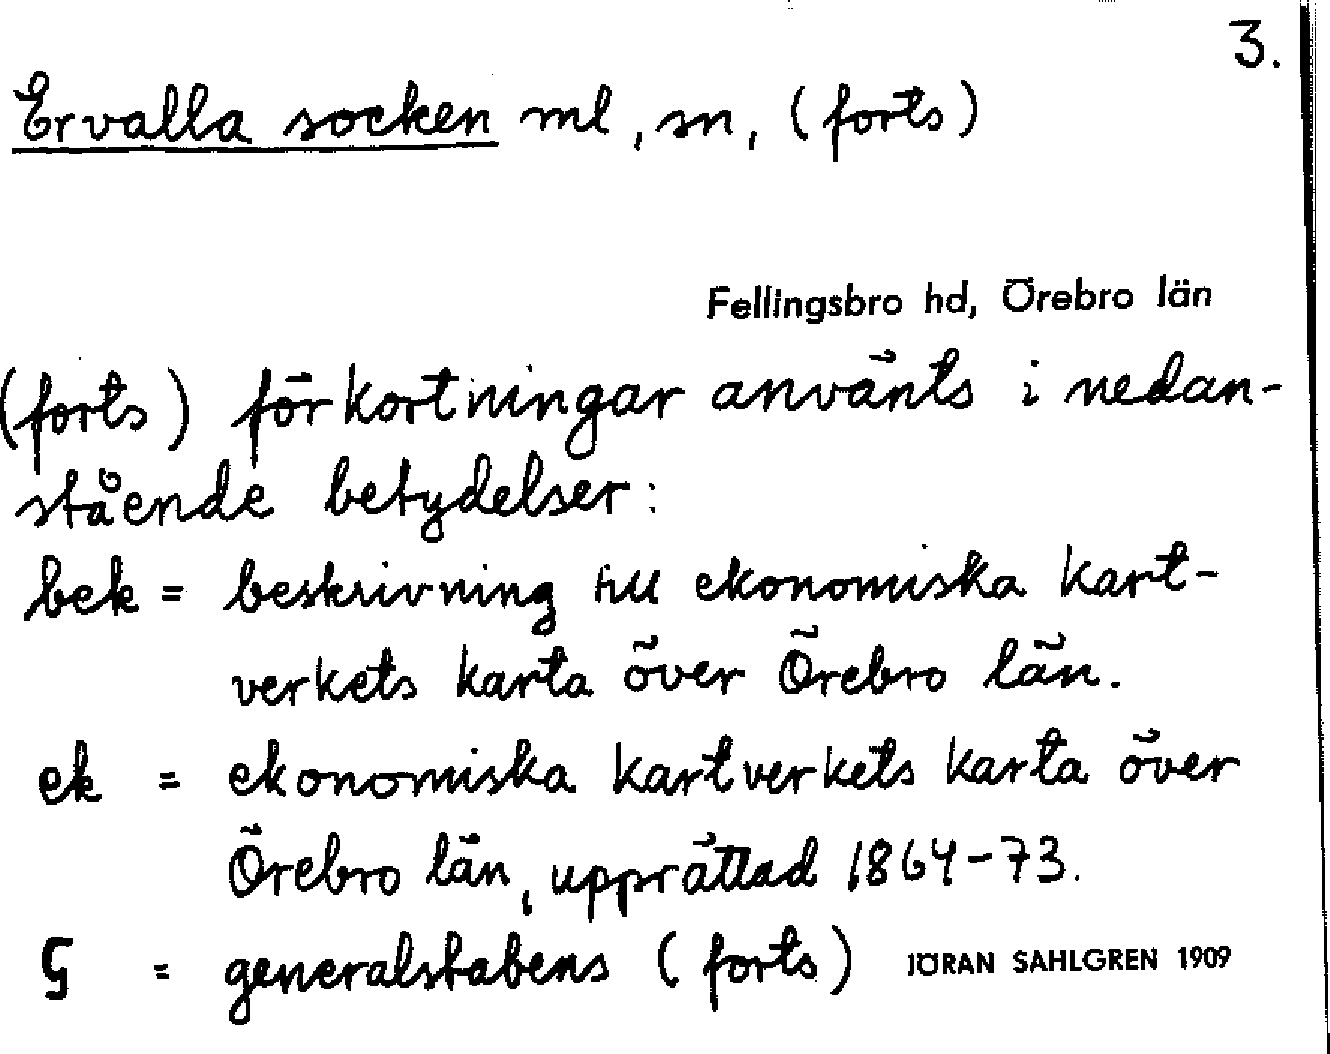 3.
Ervalla socken ml, sn, (forts)
Fellingsbro hd, Örebro län
(forts) förkortningar använts i nedan-
stående betydelser:
bek = beskrivning till ekonomiska kart-
verkets karta över Örebro län.
ek = ekonomiska kartverkets karta över
Örebro län, upprättad 1864-73.
G = generalstabens (forts) JÖRAN SAHLGREN 1909